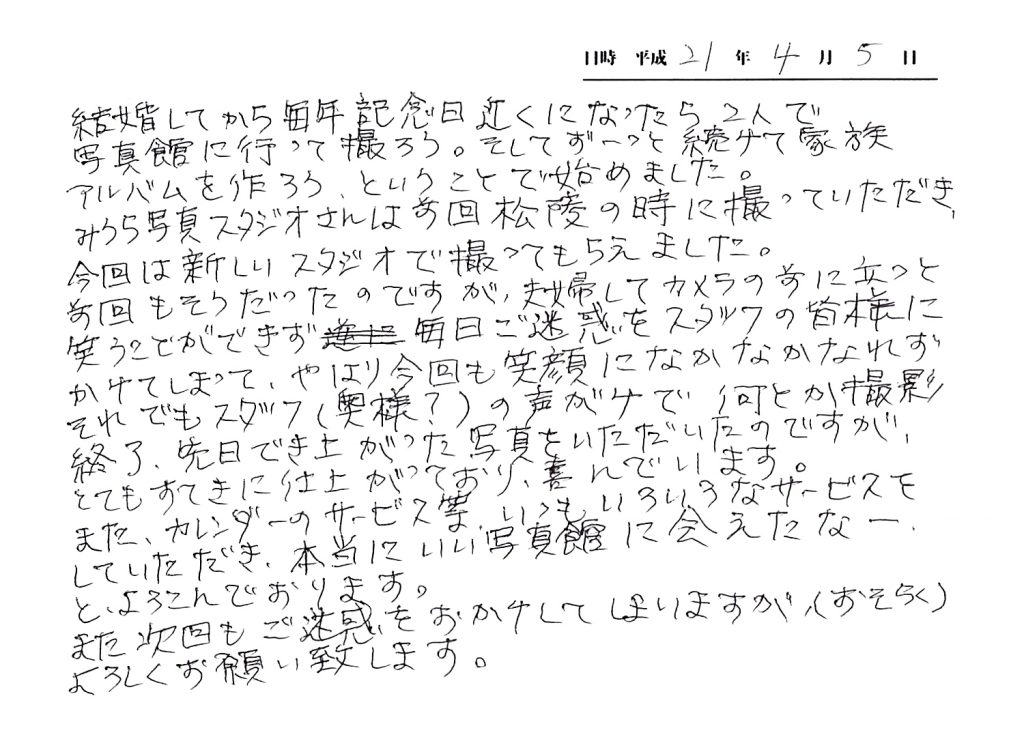 日時 平成 21 年 4 月 5 日
結婚してから毎年記念日近くになったら2人で
写真館に行って撮ろう。そしてずーっと続けて家族
アルバムを作ろう、ということで始めました。
みうら写真スタジオさんは前回松陵の時に撮っていただき、
今回は新しいスタジオで撮ってもらえました。
前回もそうだったのですが、夫婦してカメラの前に立つと
笑うことができず毎日ご迷惑をスタッフの皆様に
かけてしまって、やはり今回も笑顔になかなかなれず
それでもスタッフ(奥様?)の声がけで何とか撮影
終了、先日でき上がった写真をいただいたのですが、
とてもすてきに仕上がっており、喜んでいます。
また、カレンダーのサービス等、いつもいろいろなサービスを
していただき、本当にいい写真館に会えたなー、
と、よろこんでおります。
また次回もご迷惑をおかけしてしまいますが、(おそらく)
よろしくお願い致します。